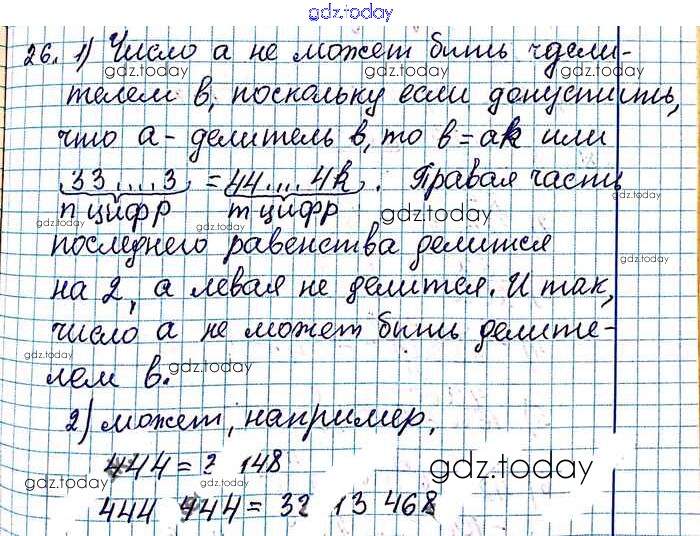 gdz.today
26. 1) Число а не может быть чдели-
gdz.today gdz.today
телем в, поскольку если допустить,
gdz.today
что а - делитель в, то в = ак или
33....3 = 44....4k. Правая часть
n цифр m цифр
gdz.today gdz.today
последнего равенства делится
gdz.today
на 2, а левая не делится. И так,
gdz.today
число а не может быть делите-
gdz.today gdz.today
лем в.
2) может, например,
444 = 3 148
gdz.today
444 444 = 33 13 468